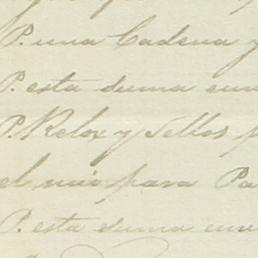 P. una Cadena y
P. esta suma
P. Relox y Sellos p
el mio para Pa
P. esta suma